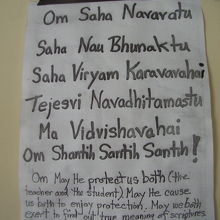 Om Saha Navavatu
Saha Nau Bhunaktu
Saha Viryam Karavavahai
Tejesvi Navadhitamastu
Ma Vidvishavahai
Om Shantih Santih Santih!
Om May He protect us both (the
teacher and the student) May He cause
us both to enjoy protection. May we both
exert to find out true meaning of scriptures.